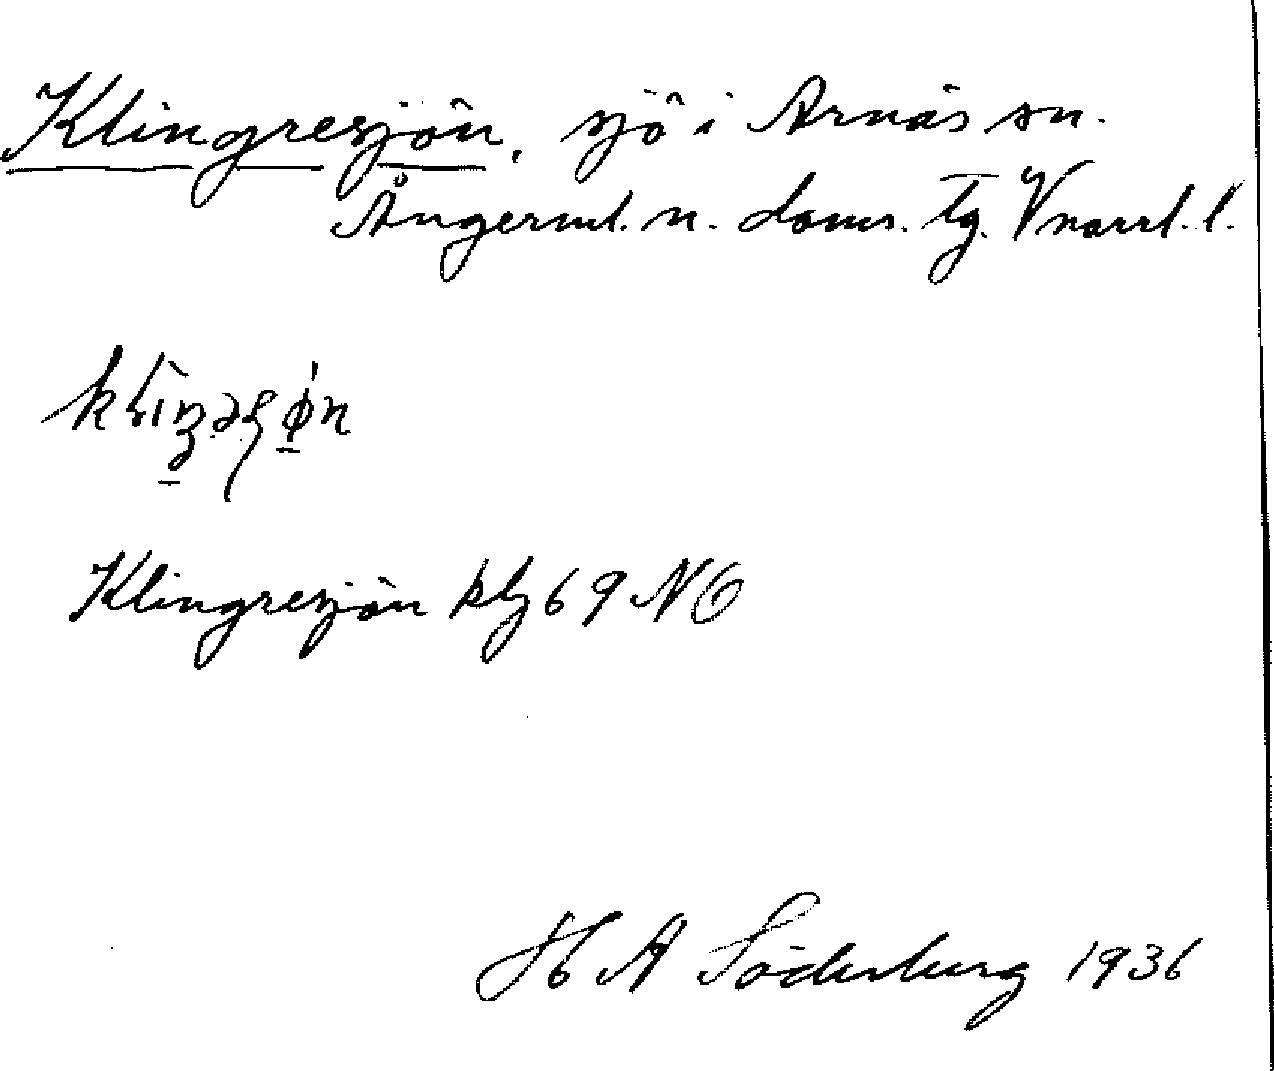 Klingresjön, sjö i Arnäs sn.
Ångerml. n. doms. tg. Vnorrl. l.
Klingresjön kbl 69 NO
H A Söderberg 1936